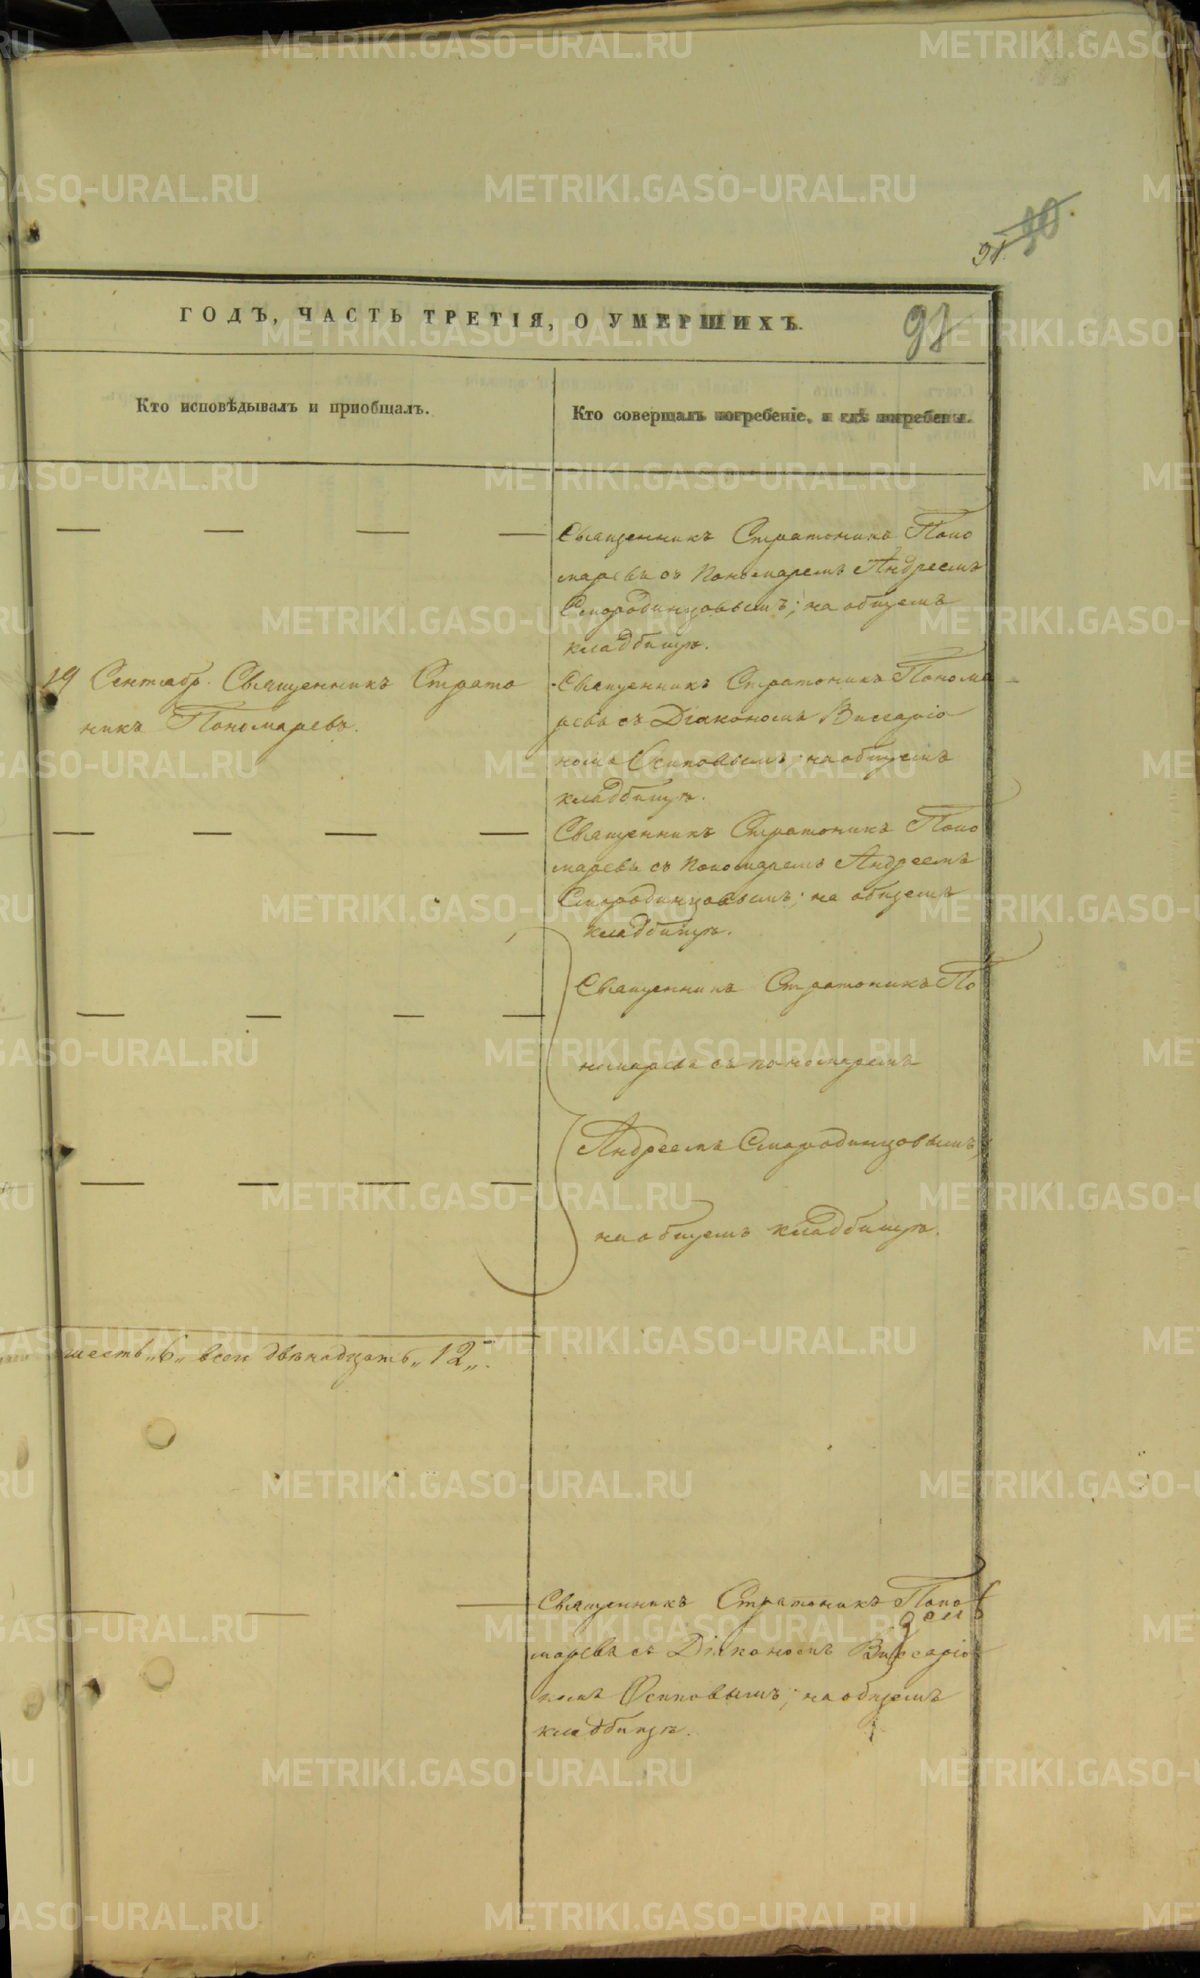 91. 90.
ГОДЪ, ЧАСТЬ ТРЕТІЯ, О УМЕРШИХЪ.
Кто исповѣдывалъ и пріобщалъ.
Кто совершалъ погребеніе, и гдѣ погребены.
Священникъ Стратоникъ Поно
маревъ съ Пономаремъ Андреемъ
Смородинцовымъ; на общемъ
кладбищѣ.
19 Сентябр. Священникъ Страто
никъ Пономаревъ.
Священникъ Стратоникъ Понома
ревъ съ Діакономъ Виссаріо
номъ Осиповымъ; на общемъ
кладбищѣ.
Священникъ Стратоникъ Поно
маревъ съ Пономаремъ Андреемъ
Смородинцовымъ; на общемъ
кладбищѣ.
Священникъ Стратоникъ По
номаревъ съ пономаремъ
Андреемъ Смородинцовымъ
на общемъ кладбищѣ.
шесть „6„ всего двѣнадцать „12„.
Священникъ Стратоникъ Поно
маревъ съ Діакономъ Виссаріо
номъ Осиповымъ; на общемъ
кладбищѣ.
METRIKI.GASO-URAL.RU